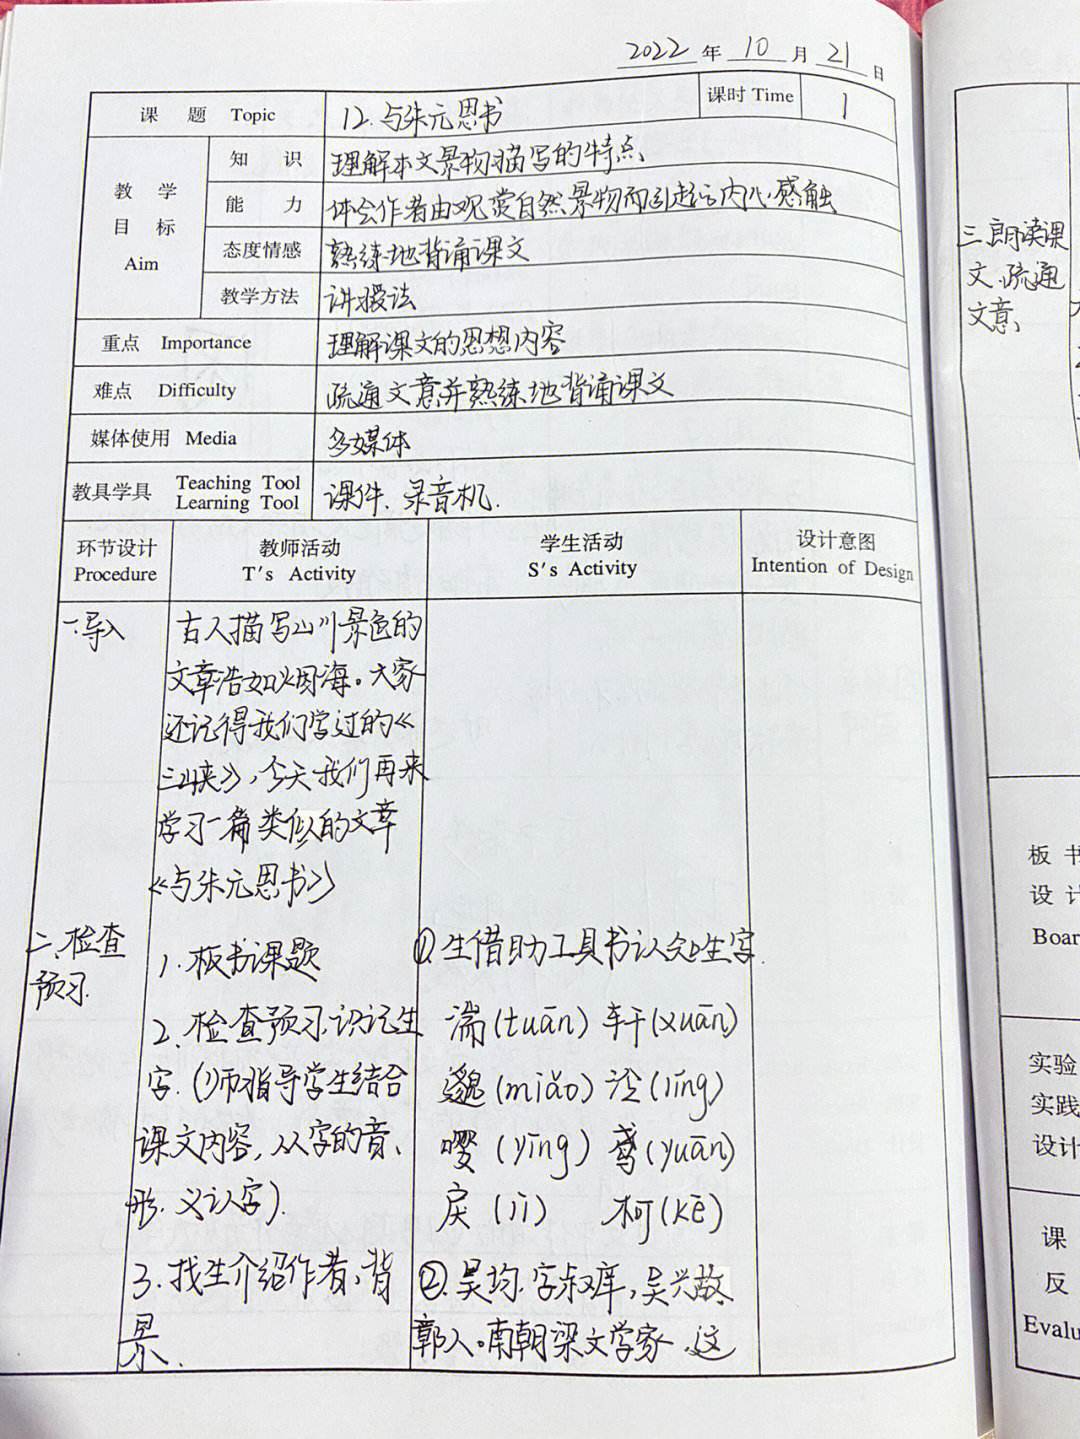 2022 年 10 月 21 日
课 题 Topic 12.与朱元思书 课时 Time 1
教 学 目 标 Aim
知 识 理解本文景物描写的特点、
能 力 体会作者由观赏自然景物而引起的内心感触
态度情感 熟练地背诵课文
教学方法 讲授法
重点 Importance 理解课文的思想内容
难点 Difficulty 疏通文意并熟练地背诵课文
媒体使用 Media 多媒体
教具学具 Teaching Tool Learning Tool 课件、录音机.
环节设计 教师活动 学生活动 设计意图
Procedure T's Activity S's Activity Intention of Design
一.导入
古人描写山川景色的
文章浩如烟海。大家
还记得我们学过的《
三峡》,今天我们再来
学习一篇类似的文章
《与朱元思书》
二、检查
预习.
1.板书课题
2.检查预习,识记生
字.(1)师指导学生结合
课文内容,从字的音、
形、义认字).
3.找生介绍作者,背
景.
①.生借助工具书认知生字.
湍(tuān) 轩(xuān)
邈(miǎo) 泠(líng)
嘤(yīng) 鸢(yuān)
戾(lì) 柯(kē)
②.吴均.字叔庠,吴兴故
鄣人。南朝梁文学家.这
三.朗读课
文.疏通
文意、
板 书
设 计
Boar
实验
实践
设计
课
反
Evalu